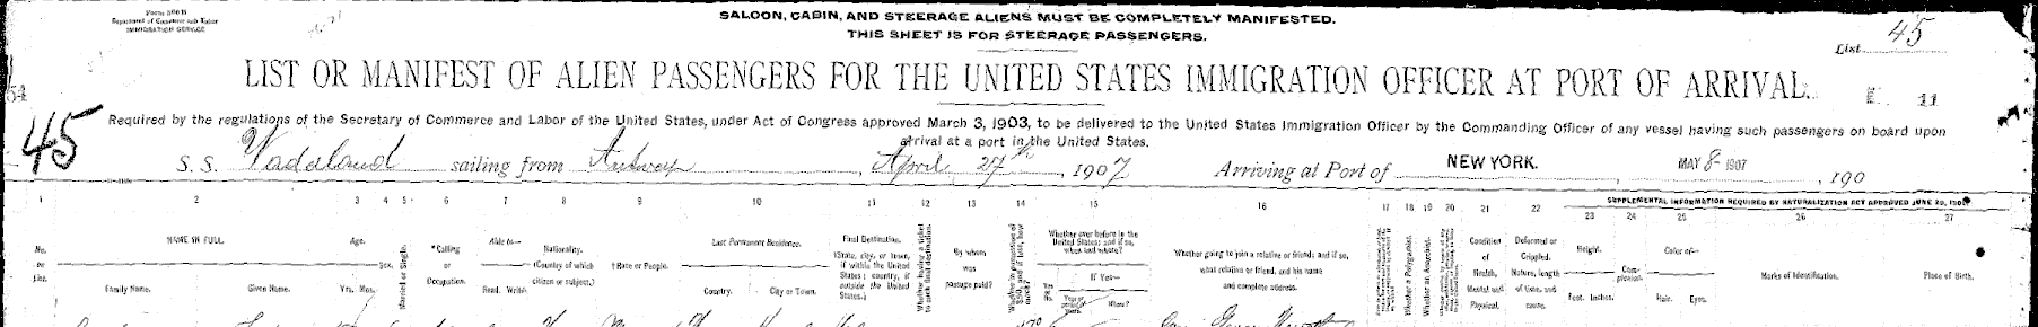 Form 1500 B
Department of Commerce and Labor
IMMIGRATION SERVICE
SALOON, CABIN, AND STEERAGE ALIENS MUST BE COMPLETELY MANIFESTED.
THIS SHEET IS FOR STEERAGE PASSENGERS.
List 45
LIST OR MANIFEST OF ALIEN PASSENGERS FOR THE UNITED STATES IMMIGRATION OFFICER AT PORT OF ARRIVAL.
54
11
45
Required by the regulations of the Secretary of Commerce and Labor of the United States, under Act of Congress approved March 3, 1903, to be delivered to the United States Immigration Officer by the Commanding Officer of any vessel having such passengers on board upon
arrival at a port in the United States.
S. S. Vaderland sailing from Antwerp, April 27th, 1907 Arriving at Port of NEW YORK. MAY 8- 1907, 190
1 2 3 4 5 6 7 8 9 10 11 12 13 14 15 16 17 18 19 20 21 22 23 24 25 26 27
SUPPLEMENTAL INFORMATION REQUIRED BY NATURALIZATION ACT APPROVED JUNE 29, 1906
No. on List.
NAME IN FULL.
Family Name. Given Name.
Age.
Yrs. Mos.
Sex.
Married or Single.
*Calling or Occupation.
Able to—
Read. Write.
Nationality.
(Country of which citizen or subject.)
†Race or People.
Last Permanent Residence.
Country. City or Town.
Final Destination.
(State, city, or town, if within the United States; country, if outside the United States.)
Whether having a ticket to such final destination.
By whom was passage paid?
Whether ever before in the United States; and if so, when and where?
Yes or No.
If Yes—
Year or period of years. Where?
Whether going to join a relative or friend; and if so, what relative or friend, and his name and complete address.
Whether a Polygamist.
Whether an Anarchist.
Condition of Health, Mental and Physical.
Deformed or Crippled.
Nature, length of time, and cause.
Height.
Feet. Inches.
Complexion.
Color of—
Hair. Eyes.
Marks of Identification.
Place of Birth.